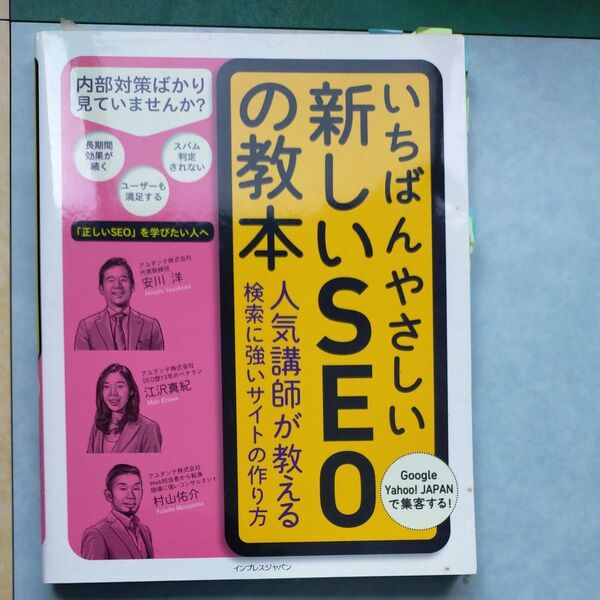 内部対策ばかり
見ていませんか?
長期間
効果が
続く
スパム
判定
されない
ユーザーも
満足する
「正しいSEO」を学びたい人へ
アユダンテ株式会社
代表取締役
安川 洋
Hiroshi Yasukawa
アユダンテ株式会社
SEO歴13年のベテラン
江沢真紀
Maki Ezawa
アユダンテ株式会社
Web担当者から転身
現場に強いコンサルタント
村山佑介
Yusuke Murayama
いちばんやさしい
新しいSEO
の教本
人気講師が教える
検索に強いサイトの作り方
Google
Yahoo! JAPAN
で集客する!
インプレスジャパン